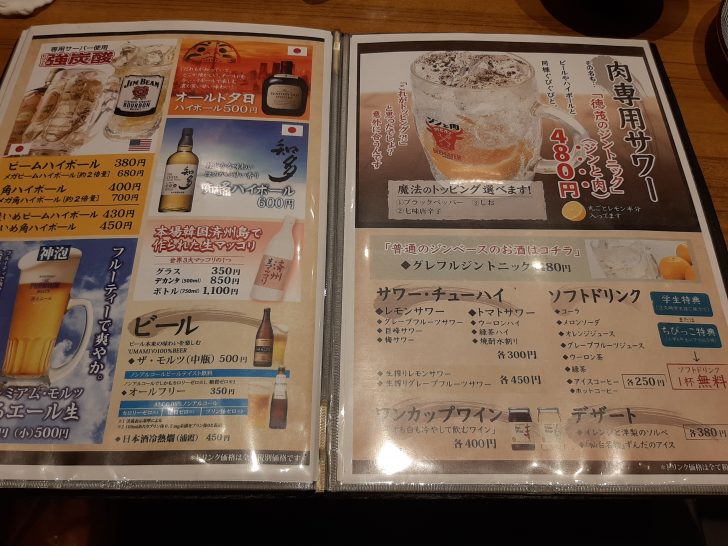 専用サーバー使用
強炭酸
JIM BEAM
BOURBON
ビームハイボール 380円
メガビームハイボール[約2倍量] 680円
角ハイボール 400円
メガ角ハイボール[約2倍量] 700円
濃いめビームハイボール 430円
濃いめ角ハイボール 450円
オールド夕日
ハイボール500円
知多
ハイボール
600円
本場韓国済州島で
作られた生マッコリ
世界3大マッコリの1つ
グラス 350円
デカンタ(500ml) 850円
ボトル(750ml) 1,100円
神泡
フルーティーで爽やか。
ミアム・モルツ
エール生
(小)500円
ビール
ビール本来の味わいを楽しむ
"UMAMI"の100%BEER
◆ザ・モルツ(中瓶) 500円
ノンアルコールビールテイスト飲料
◆オールフリー 350円
◆日本酒冷熱燗(浦霞) 450円
※ドリンク価格は全て税別価格です。
肉専用サワー
その名も…
「徳茂のジントニック」
【ジンと肉】
480円
ビールやハイボールと
同様ぐびぐびと。
「これがトッピング?」
と思うでしょ?
意外に合うんです
ジンと肉
魔法のトッピング選べます!
①ブラックペッパー ③しお
②七味唐辛子
丸ごとレモン半分
入ってます
「普通のジンベースのお酒はコチラ」
◆グレフルジントニック 480円
サワー・チューハイ
◆レモンサワー
◆グレープフルーツサワー
◆巨峰サワー
◆梅サワー
◆トマトサワー
◆ウーロンハイ
◆緑茶ハイ
◆焼酎水割り
各300円
◆生搾りレモンサワー
◆生搾りグレープフルーツサワー 各450円
ソフトドリンク
◆コーラ
◆メロンソーダ
◆オレンジジュース
◆グレープフルーツジュース
◆ウーロン茶
◆緑茶
◆アイスコーヒー
◆ホットコーヒー
各250円
学生特典
または
ちびっこ特典
ソフトドリンク
1杯無料
ワンカップワイン
も白も冷やして飲むワイン」
各400円
デザート
各380円
※ドリンク価格は全て税